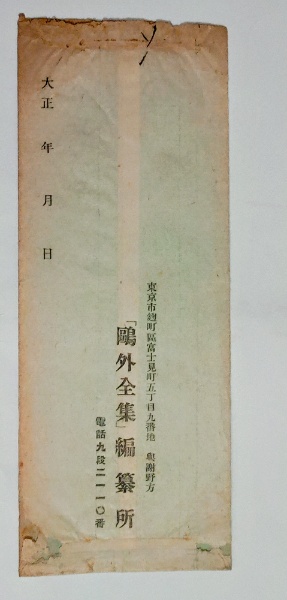 東京市麹町區富士見町五丁目九番地　與謝野方
「鷗外全集」編纂所
電話九段二一一〇番
大正　年　月　日